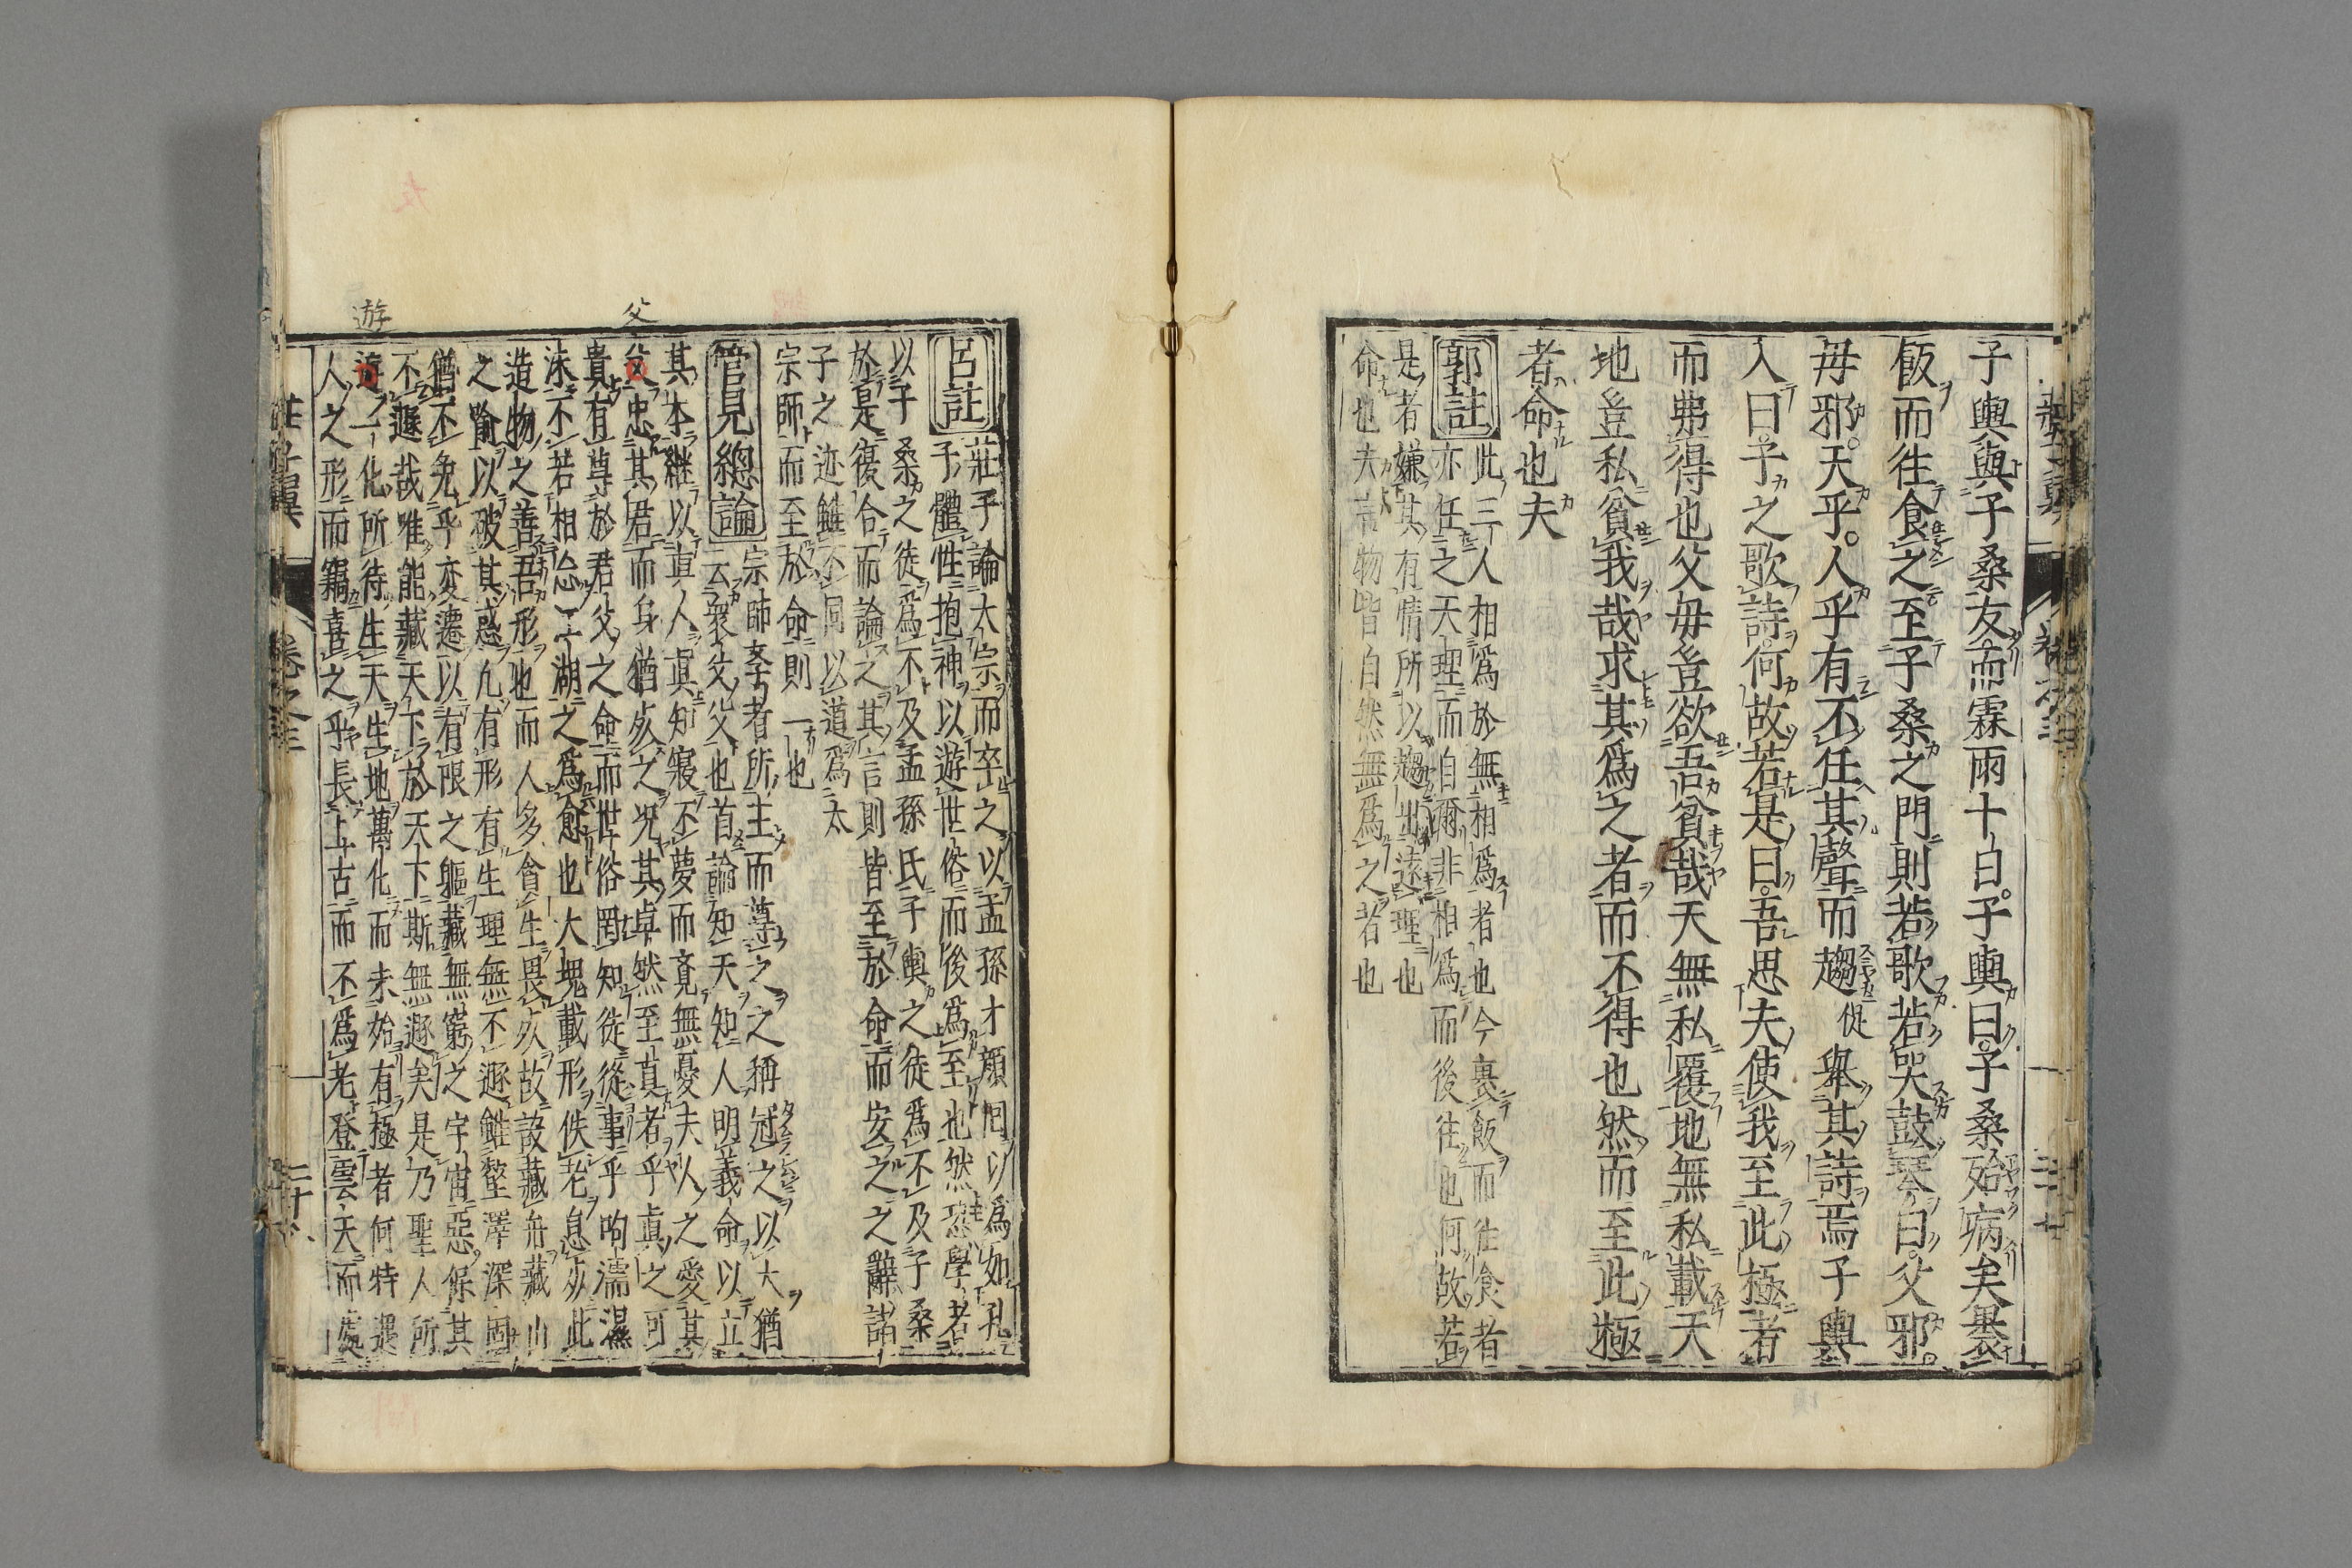 子輿與子桑友而霖雨十日子輿曰子桑殆病矣裹
飯而往食之至子桑之門則若歌若哭鼓琴曰父邪
毋邪天乎人乎有不任其聲而趨促舉其詩焉子輿
入曰子之歌詩何故若是曰吾思夫使我至此極者
而弗得也父毋豈欲吾貧哉天無私覆地無私載天
地豈私貧我哉求其爲之者而不得也然而至此極
者命也夫
郭註
此三人相爲於無相爲者也今裹飯而往食者
亦任之天理而自爾非相爲而後往也何故若
是者嫌其有情所以趨出遠理也
命也夫言物皆自然無爲之若也
呂註
莊子論太宗而卒之以孟孫才顏回以爲如孔
子體性抱神以遊世俗而後爲至也然恐學者
以子桑之徒爲不及孟孫氏子輿之徒爲不及子桑
於是復合而論之其言則皆至於命而安之之辭諸
子之迹雖不同以道爲太
宗師而至於命則一也
管見總論
宗師者所主而尊之之稱冠之以大猶
云衆父父也首論知天知人明義命以立
其本継以真人真知寢不夢而覺無憂夫人之愛其
父忠其君而身猶死之况其卓然至真者乎真之可
貴有尊於君父之命而世俗罔知徒從事乎呴濡濕
沫不若相忘江湖之爲愈也大塊載形佚老息死此
造物之善吾形也而人多貪生畏死故設藏舟藏山
之喻以破其惑凡有形有生理無不遯雖壑澤深固
猶不免乎変遷以有限之軀藏無窮之宇宙惡保其
不遯哉唯能藏天下於天下斯無遯矣是乃聖人所
遊一化所待生天生地萬化而未始有極者何特遇
人之形而竊喜之乎長上古而不爲老登雲天而處
父
遊
莊子翼
卷之三
二十八